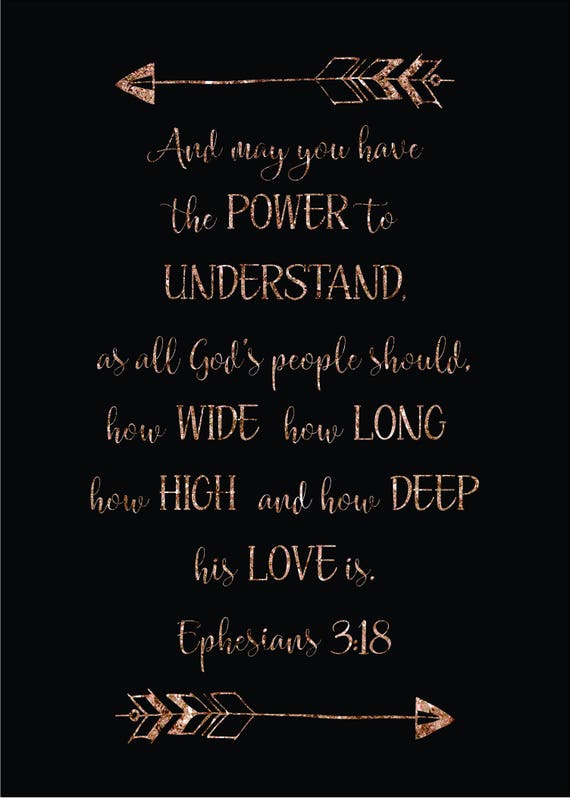 And may you have
the POWER to
UNDERSTAND,
as all God's people should,
how WIDE how LONG
how HIGH and how DEEP
his LOVE is.
Ephesians 3:18